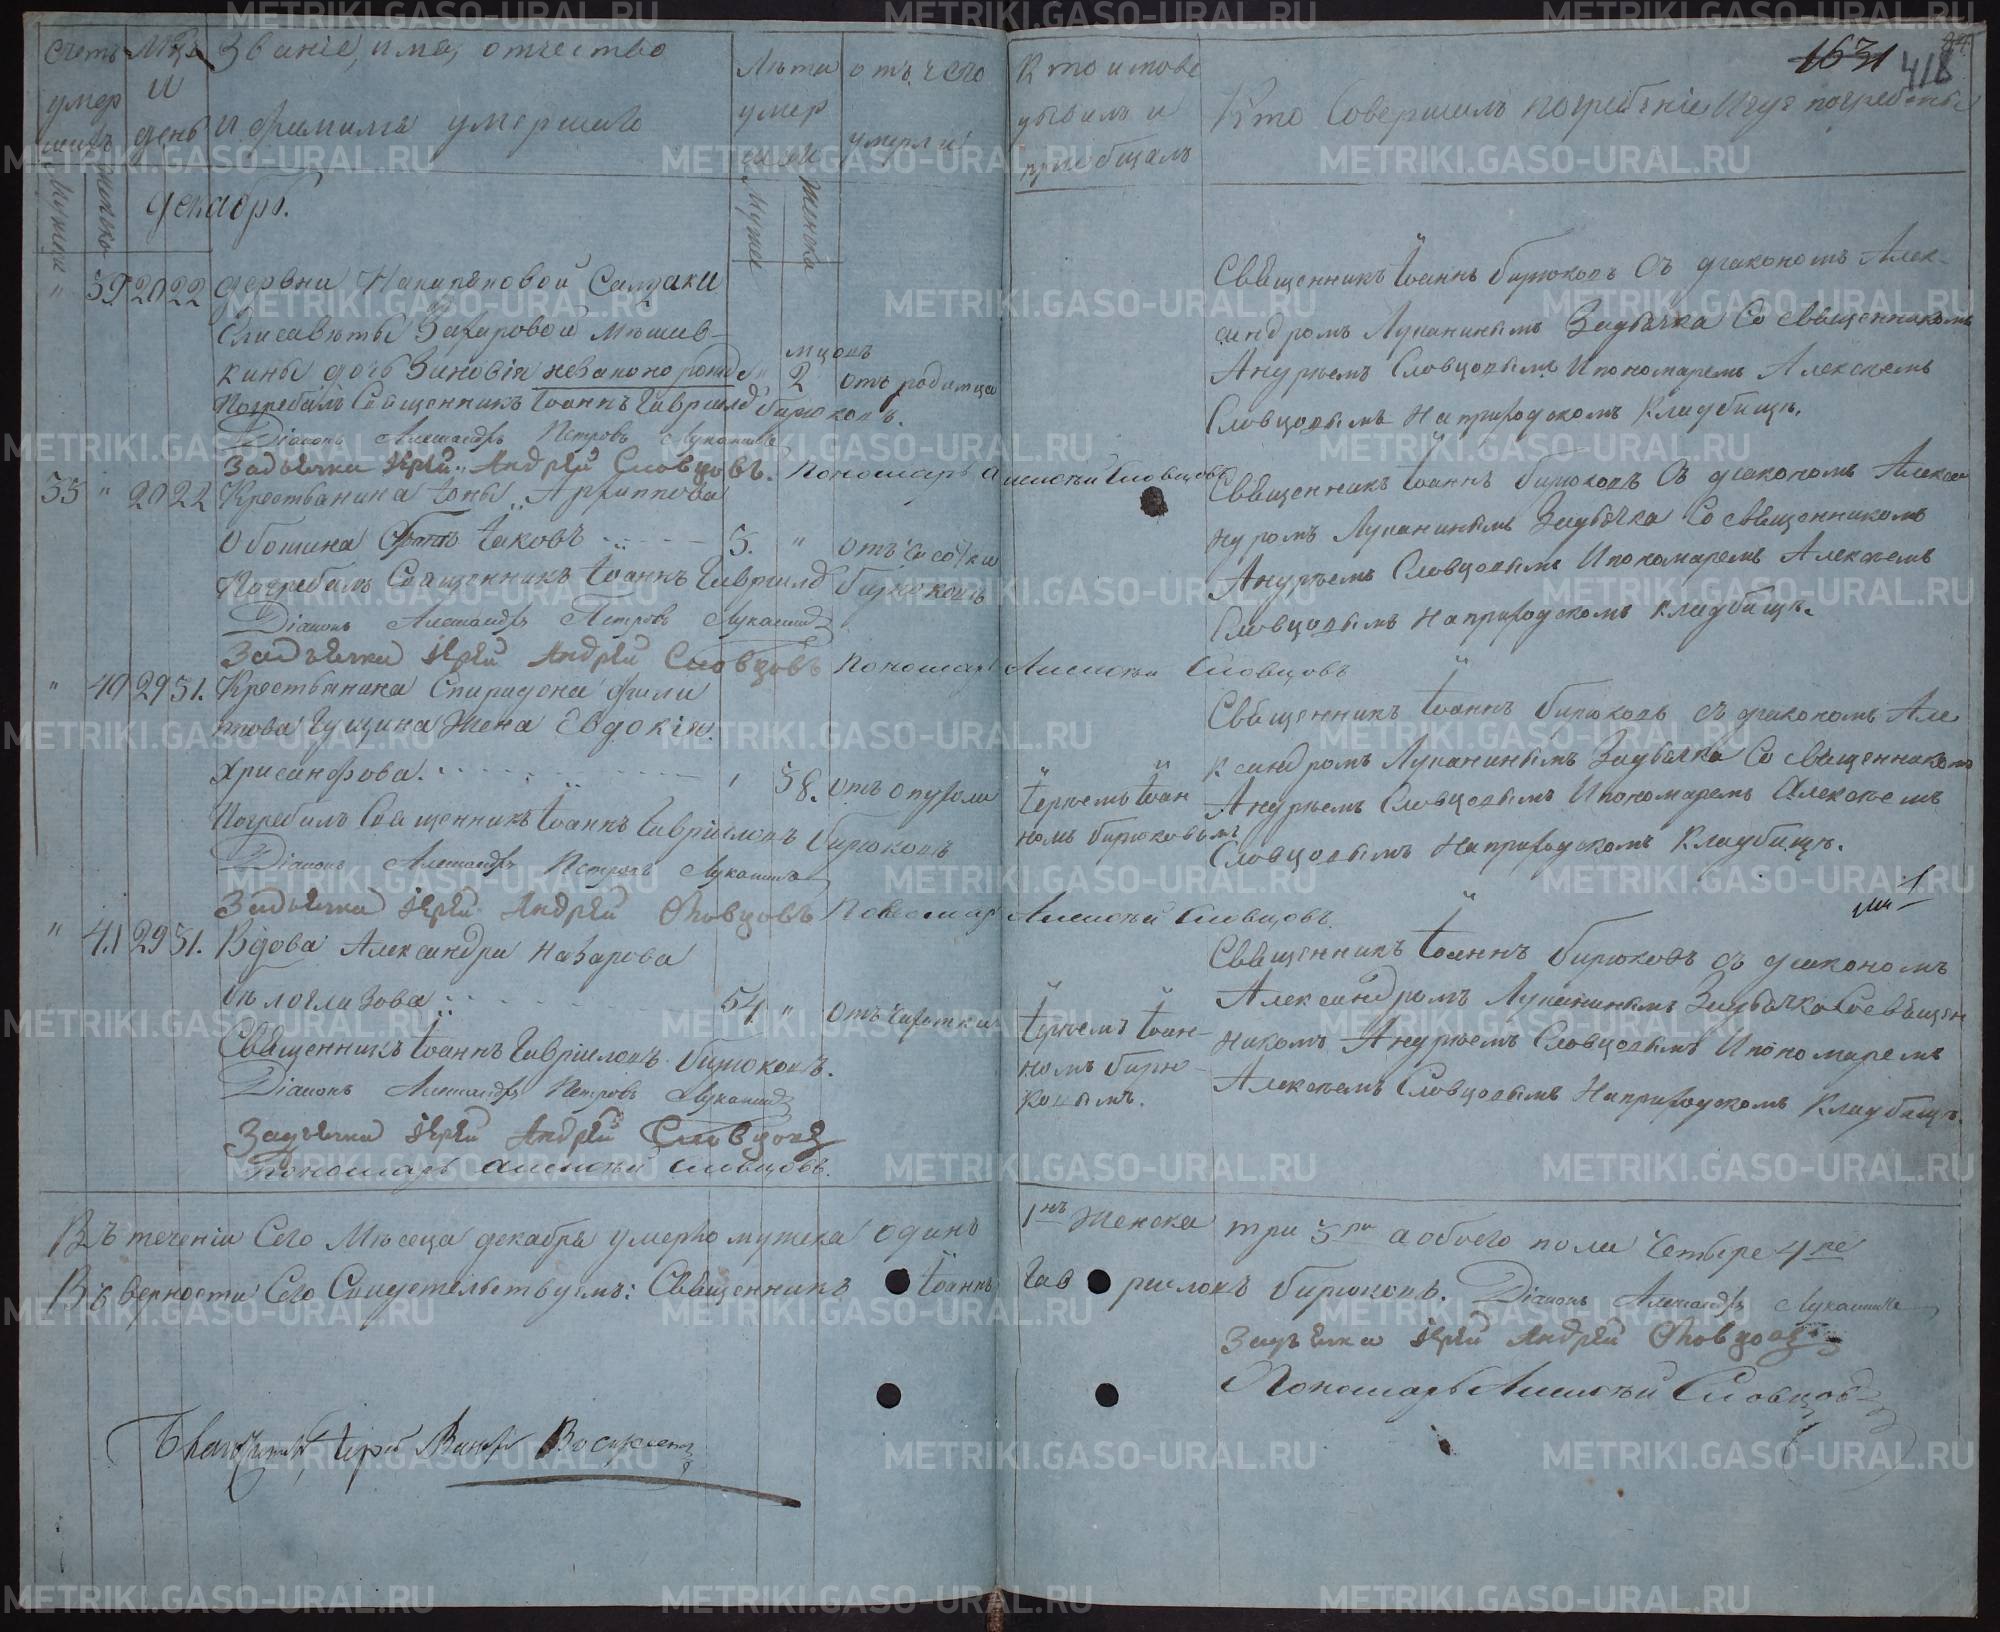 1631 418
Счетъ умер шихъ
Мцъ и день
Званіе, имя, отчество
и фамилія умершаго
Лѣта умер шаго
отъ чего умерли
Кто исповѣдывалъ и пріобщалъ
Кто Совершилъ погребеніе и гдѣ погребены
мужска женска
мужска женска
Декабрь.
" 39 20 22 деревни Салдатки
Елисаветы Захаровой Мюшев-
кины дочь Зиновія незаконо рожде " мцовъ 2 отъ родимца
Погребалъ Священникъ Іоаннъ Гавріиловъ Бирюковъ.
Діаконъ Александръ Петровъ Луканинъ
Задьячка Іерей Андрей Словцовъ. Пономарь Алексѣй Словцовъ
Священникъ Іоаннъ Бирюковъ Съ діакономъ Алек-
сандромъ Луканинымъ Задьячка Со Священникомъ
Андрѣемъ Словцовымъ И пономаремъ Алексѣемъ
Словцовымъ На приходскомъ Кладбищѣ.
35 " 20 22 Крестьянина Іоны Архиппова
Обошина Сынъ Іаковъ 5. " отъ Чесотки
Погребалъ Священникъ Іоаннъ Гавріилов Бирюковъ
Діаконъ Александръ Петровъ Луканинъ
Задьячка Іерей Андрей Словцовъ Пономарь Алексѣй Словцовъ
Священникъ Іоаннъ Бирюковъ Съ діакономъ Алексан
дромъ Луканинымъ Задьячка Со Священникомъ
Андрѣемъ Словцовымъ И пономаремъ Алексѣемъ
Словцовымъ На приходскомъ Кладбищѣ.
" 40 29 31. Крестьянина Спиридона Фили
пова Гущина Жена Евдокія
Хрисанфова. " 58. отъ опухоли
Іереемъ Іоан
номъ Бирюковымъ
Погребалъ Священникъ Іоаннъ Гавріиловъ Бирюковъ
Діаконъ Александръ Петровъ Луканинъ
Задьячка Іерей Андрей Словцовъ Пономарь Алексѣй Словцовъ.
Священникъ Іоаннъ Бирюковъ съ діакономъ Але
ксандромъ Луканинымъ Задьячка Со Священникомъ
Андрѣемъ Словцовымъ И пономаремъ Алексѣемъ
Словцовымъ На приходскомъ Кладбищѣ.
" 41 29 31. Вдова Александра Назарова
Бѣлоглазова 54 " отъ Чахотки
Іереемъ Іоан-
номъ Бирю-
ковымъ.
Священникъ Іоаннъ Гавріиловъ Бирюковъ.
Діаконъ Александръ Петровъ Луканинъ
Задьячка Іерей Андрей Словцовъ
Пономарь Алексѣй Словцовъ.
Священникъ Іоаннъ Бирюковъ съ діакономъ
Александромъ Луканинымъ Задьячка Со Священ
никомъ Андрѣемъ Словцовымъ И пономаремъ
Алексѣемъ Словцовымъ На приходскомъ Кладбищѣ.
Въ теченіи Сего Мѣсеца декабря умерло мужска одинъ 1нъ женска три 3ри а обоего пола Четыре 4ре
Въ верности Сего Свидетельствуемъ: Священникъ Іоаннъ Гавріиловъ Бирюковъ. Діаконъ Александръ Луканинъ
Задьячка Іерей Андрей Словцовъ
Пономарь Алексѣй Словцовъ
METRIKI.GASO-URAL.RU